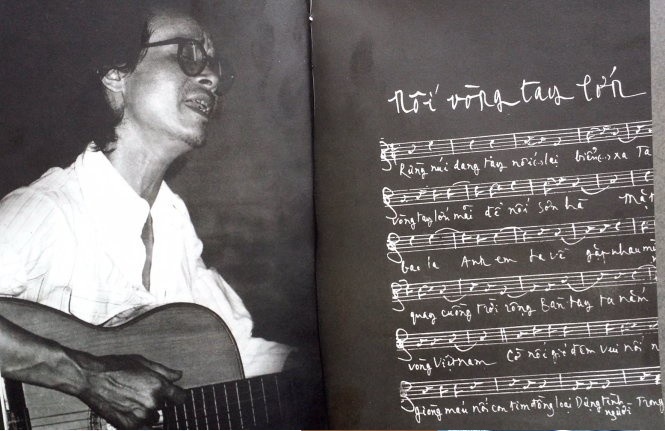 nối vòng tay lớn
Rừng núi dang tay nối(..)lại biển(..)xa Ta
vòng tay lớn mãi để nối Sơn hà Mặt
bao la Anh em ta về gặp nhau
quay cuồng trời rộng Bàn tay ta nắm
vòng Việt nam Cờ nối gió đêm vui nối
giòng máu nối con tim đồng loại Dựng tình người - Trong